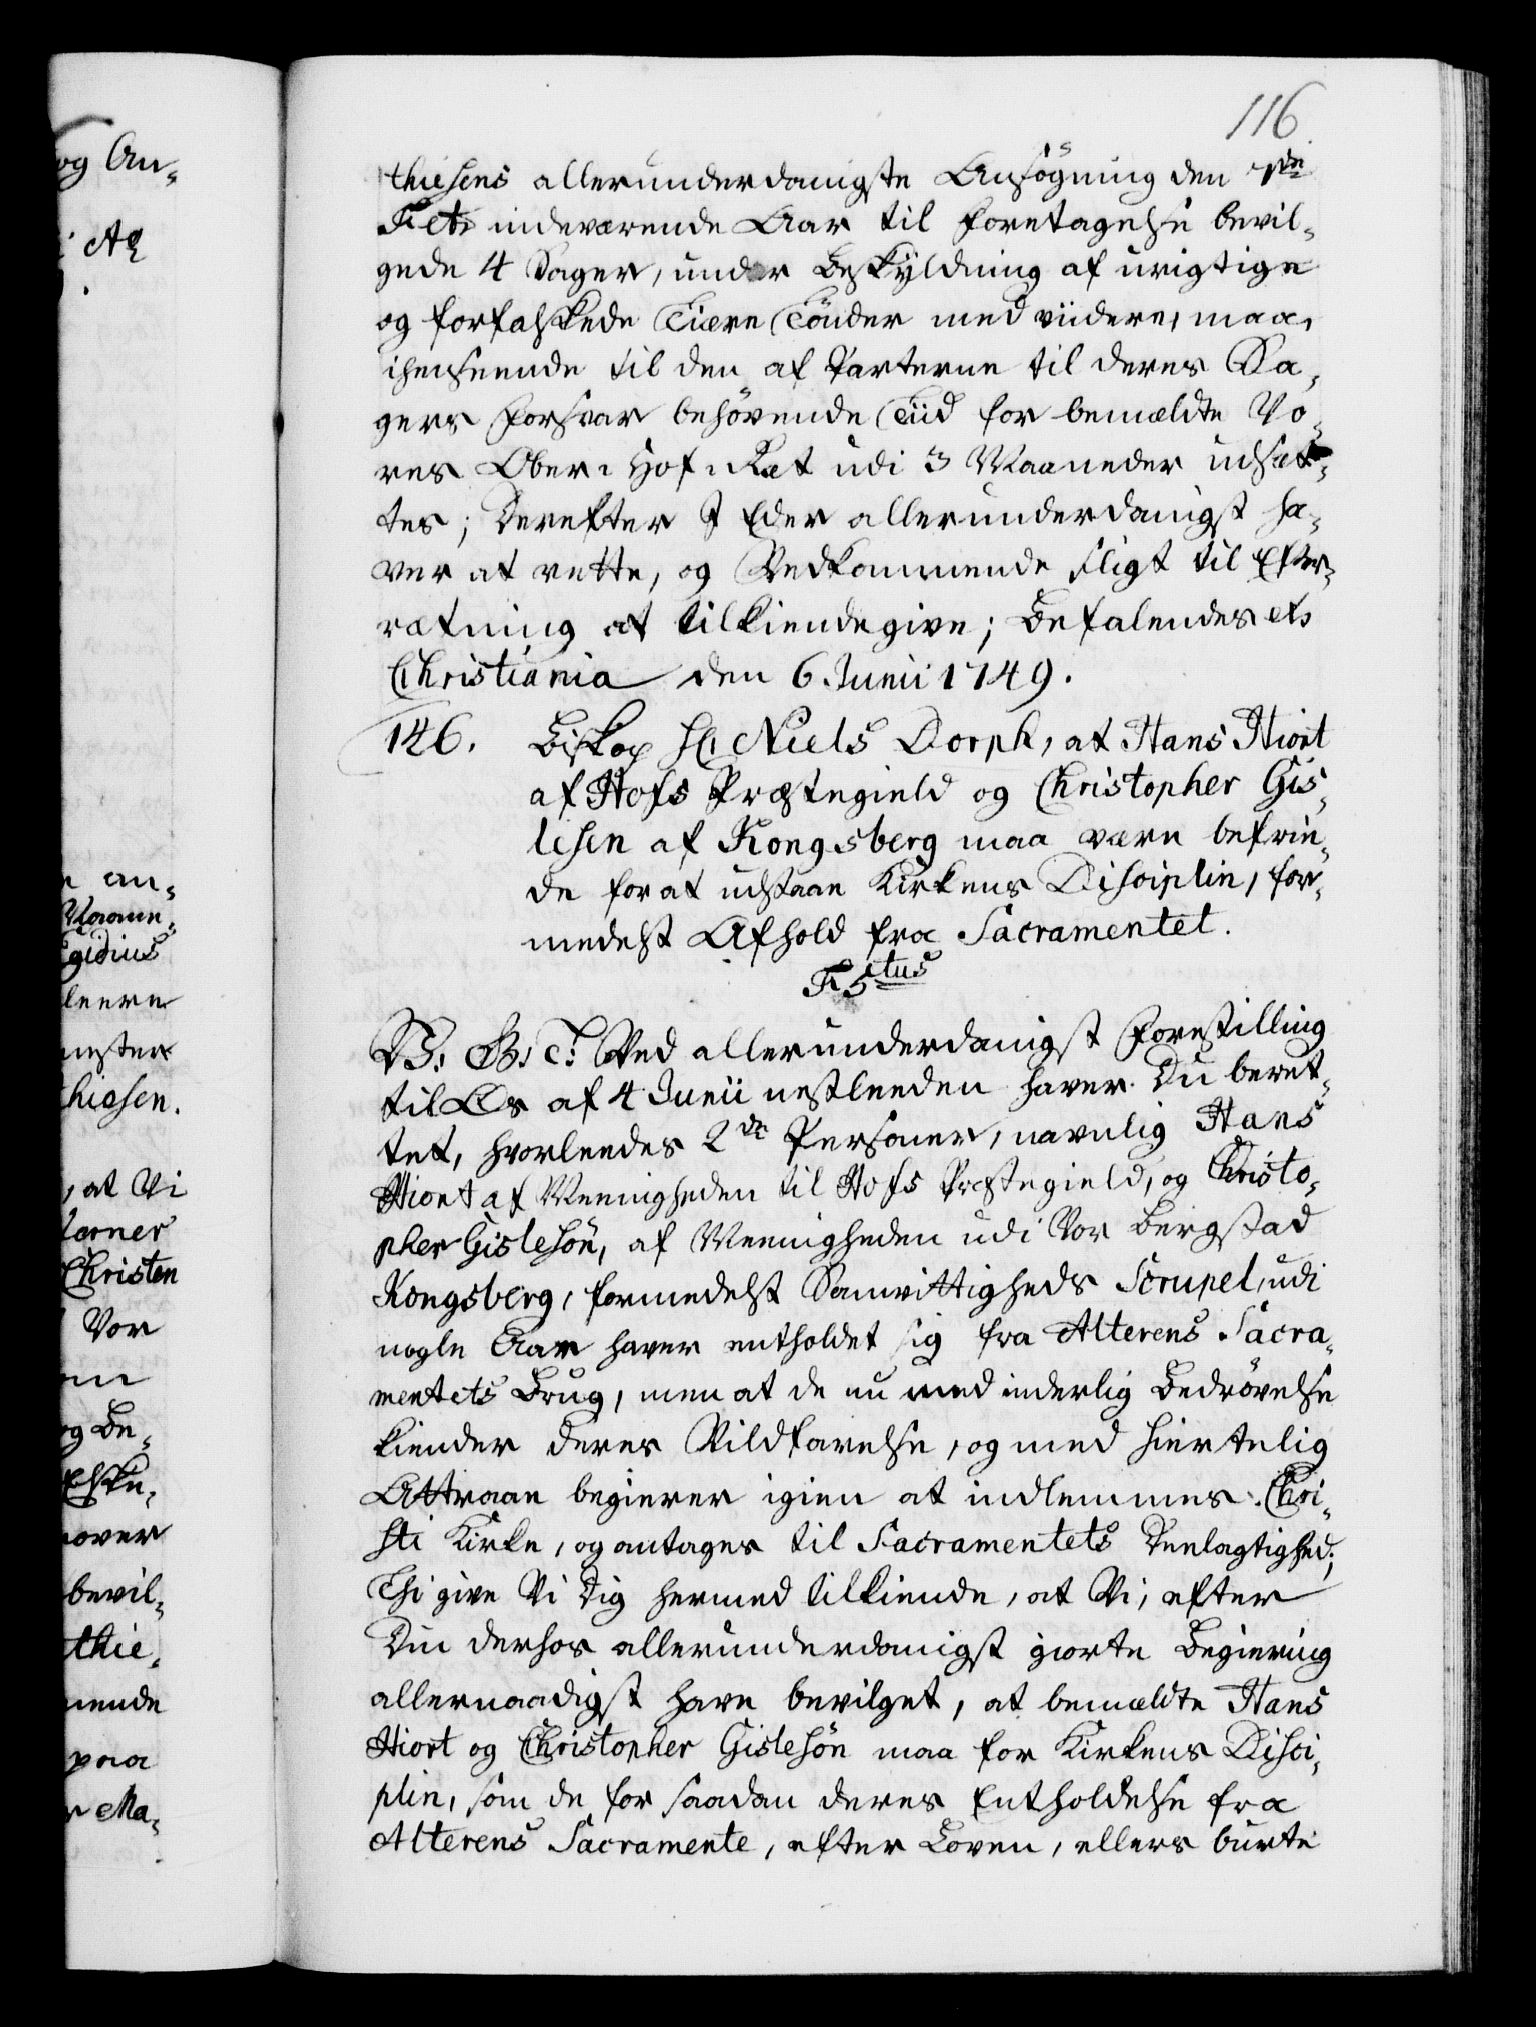 116
thiesens allerunderdanigste Ansøgning den 1de
Febr indeværende Aar til Foretagelse bevil-
gede 4 Sager, under Beskyldning af urigtige
og forfalskede Tiære Tønder med viidere, maa,
ihenseende til den af Parterne til deres Sa-
gers Forsvar behøvende Tiid for bemældte Vo-
res Ober Hof Ræt udi 3 Maaneder udsæt-
tes; Derefter I Eder allerunderdanigst ha-
ver at rette, og Vedkommende sligt til Efter-
rætning at tilkiendegive; Befalendes etc
Christiania den 6 Junii 1749.
146. Biskop Hr Niels Dorph, at Hans Hiort
af Hofs Præstegield og Christopher Gis-
lesen af Kongsberg maa være befrie-
de for at udstaae Kirkens Disciplin, for-
medelst Afhold fra Sacramentet.
F 5tus
V: G: T: Ved allerunderdanigst Forestilling
til Os af 4 Junii nestleeden haver Du beret-
tet, hvorleedes 2de Personer, navnlig Hans
Hiort af Meenigheden til Hofs Præstegield, og Christo-
pher Gislesøn, af Meenigheden udi Vor Bergstad
Kongsberg, formedelst Samvittigheds Scrupel, udi
nogle Aar haver entholdet sig fra Alterens Sacra-
mentets Brug, men at de nu med inderlig Bedrøvelse
kiender deres Vildfarelse, og med hiertelig
Attraae begierer igien at indlemmes Chri-
sti Kirke, og antages til Sacramentets Deelagtighed;
Thi give Vi Dig hermed tilkiende, at Vi, efter
Din derhos allerunderdanigst giorte Begiering
allernaadigst have bevilget, at bemældte Hans
Hiort og Christopher Gislesøn maa for Kirkens Disci-
plin, som de for saadan deres Entholdelse fra
Alterens Sacramente, efter Loven, ellers burte